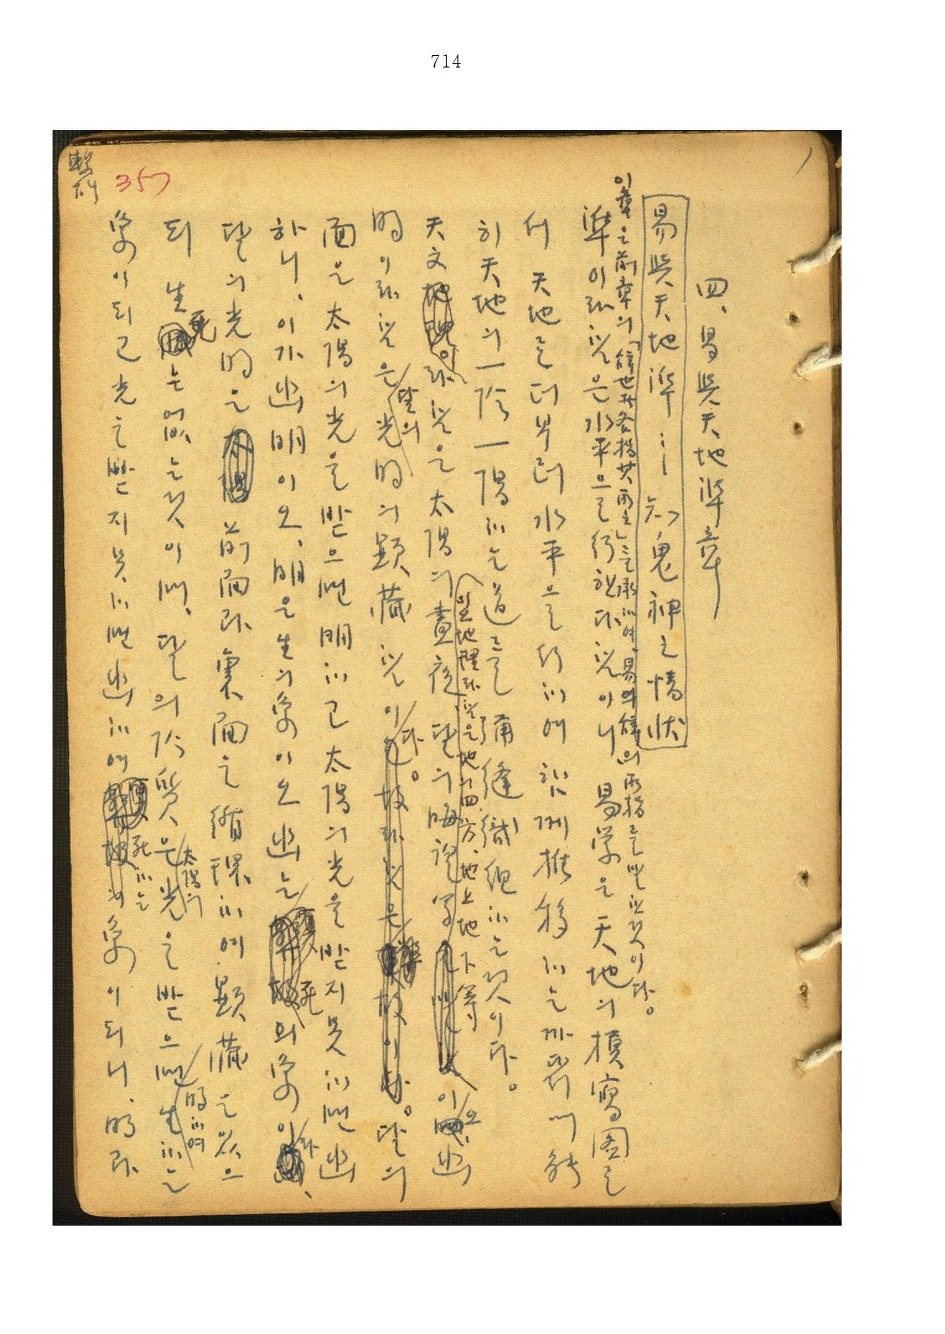 714
繫
357
四. 易與天地準章
易與天地準…知鬼神之情狀
이 章은 前章의 「辭也者各指其所之」를 承하여 易의 辭의 所指를 말한 것이다.
準이라 함은 水平으로 行한다 함이니 易學은 天地의 模寫圖로
서 天地로 더부러 水平으로 行하며 함께 推移하는 까닭에 能
히 天地의 一陰一陽하는 道를 彌縫織組하는 것이다.
天文이라 함은 太陽의 晝夜, 달의 晦望等
地理라 함은 地의 四方, 地上地下等 이오, 幽
明이라 함은 달의 光明의 顯藏함이다. 달의
面은 太陽의 光을 받으면 明하고 太陽의 光을 받지 못하면 幽
하니, 이가 幽明이오, 明은 生의 象이오 幽는 死의 象이라,
달의 光明은 前面과 裏面을 循環하며 顯藏은 있으
되 生死는 없는 것이며, 달의 陰質은 太陽의 光을 받으면 明하여 生하는
象이 되고 光을 받지 못하면 幽하여 死하는 象이 되니, 明과